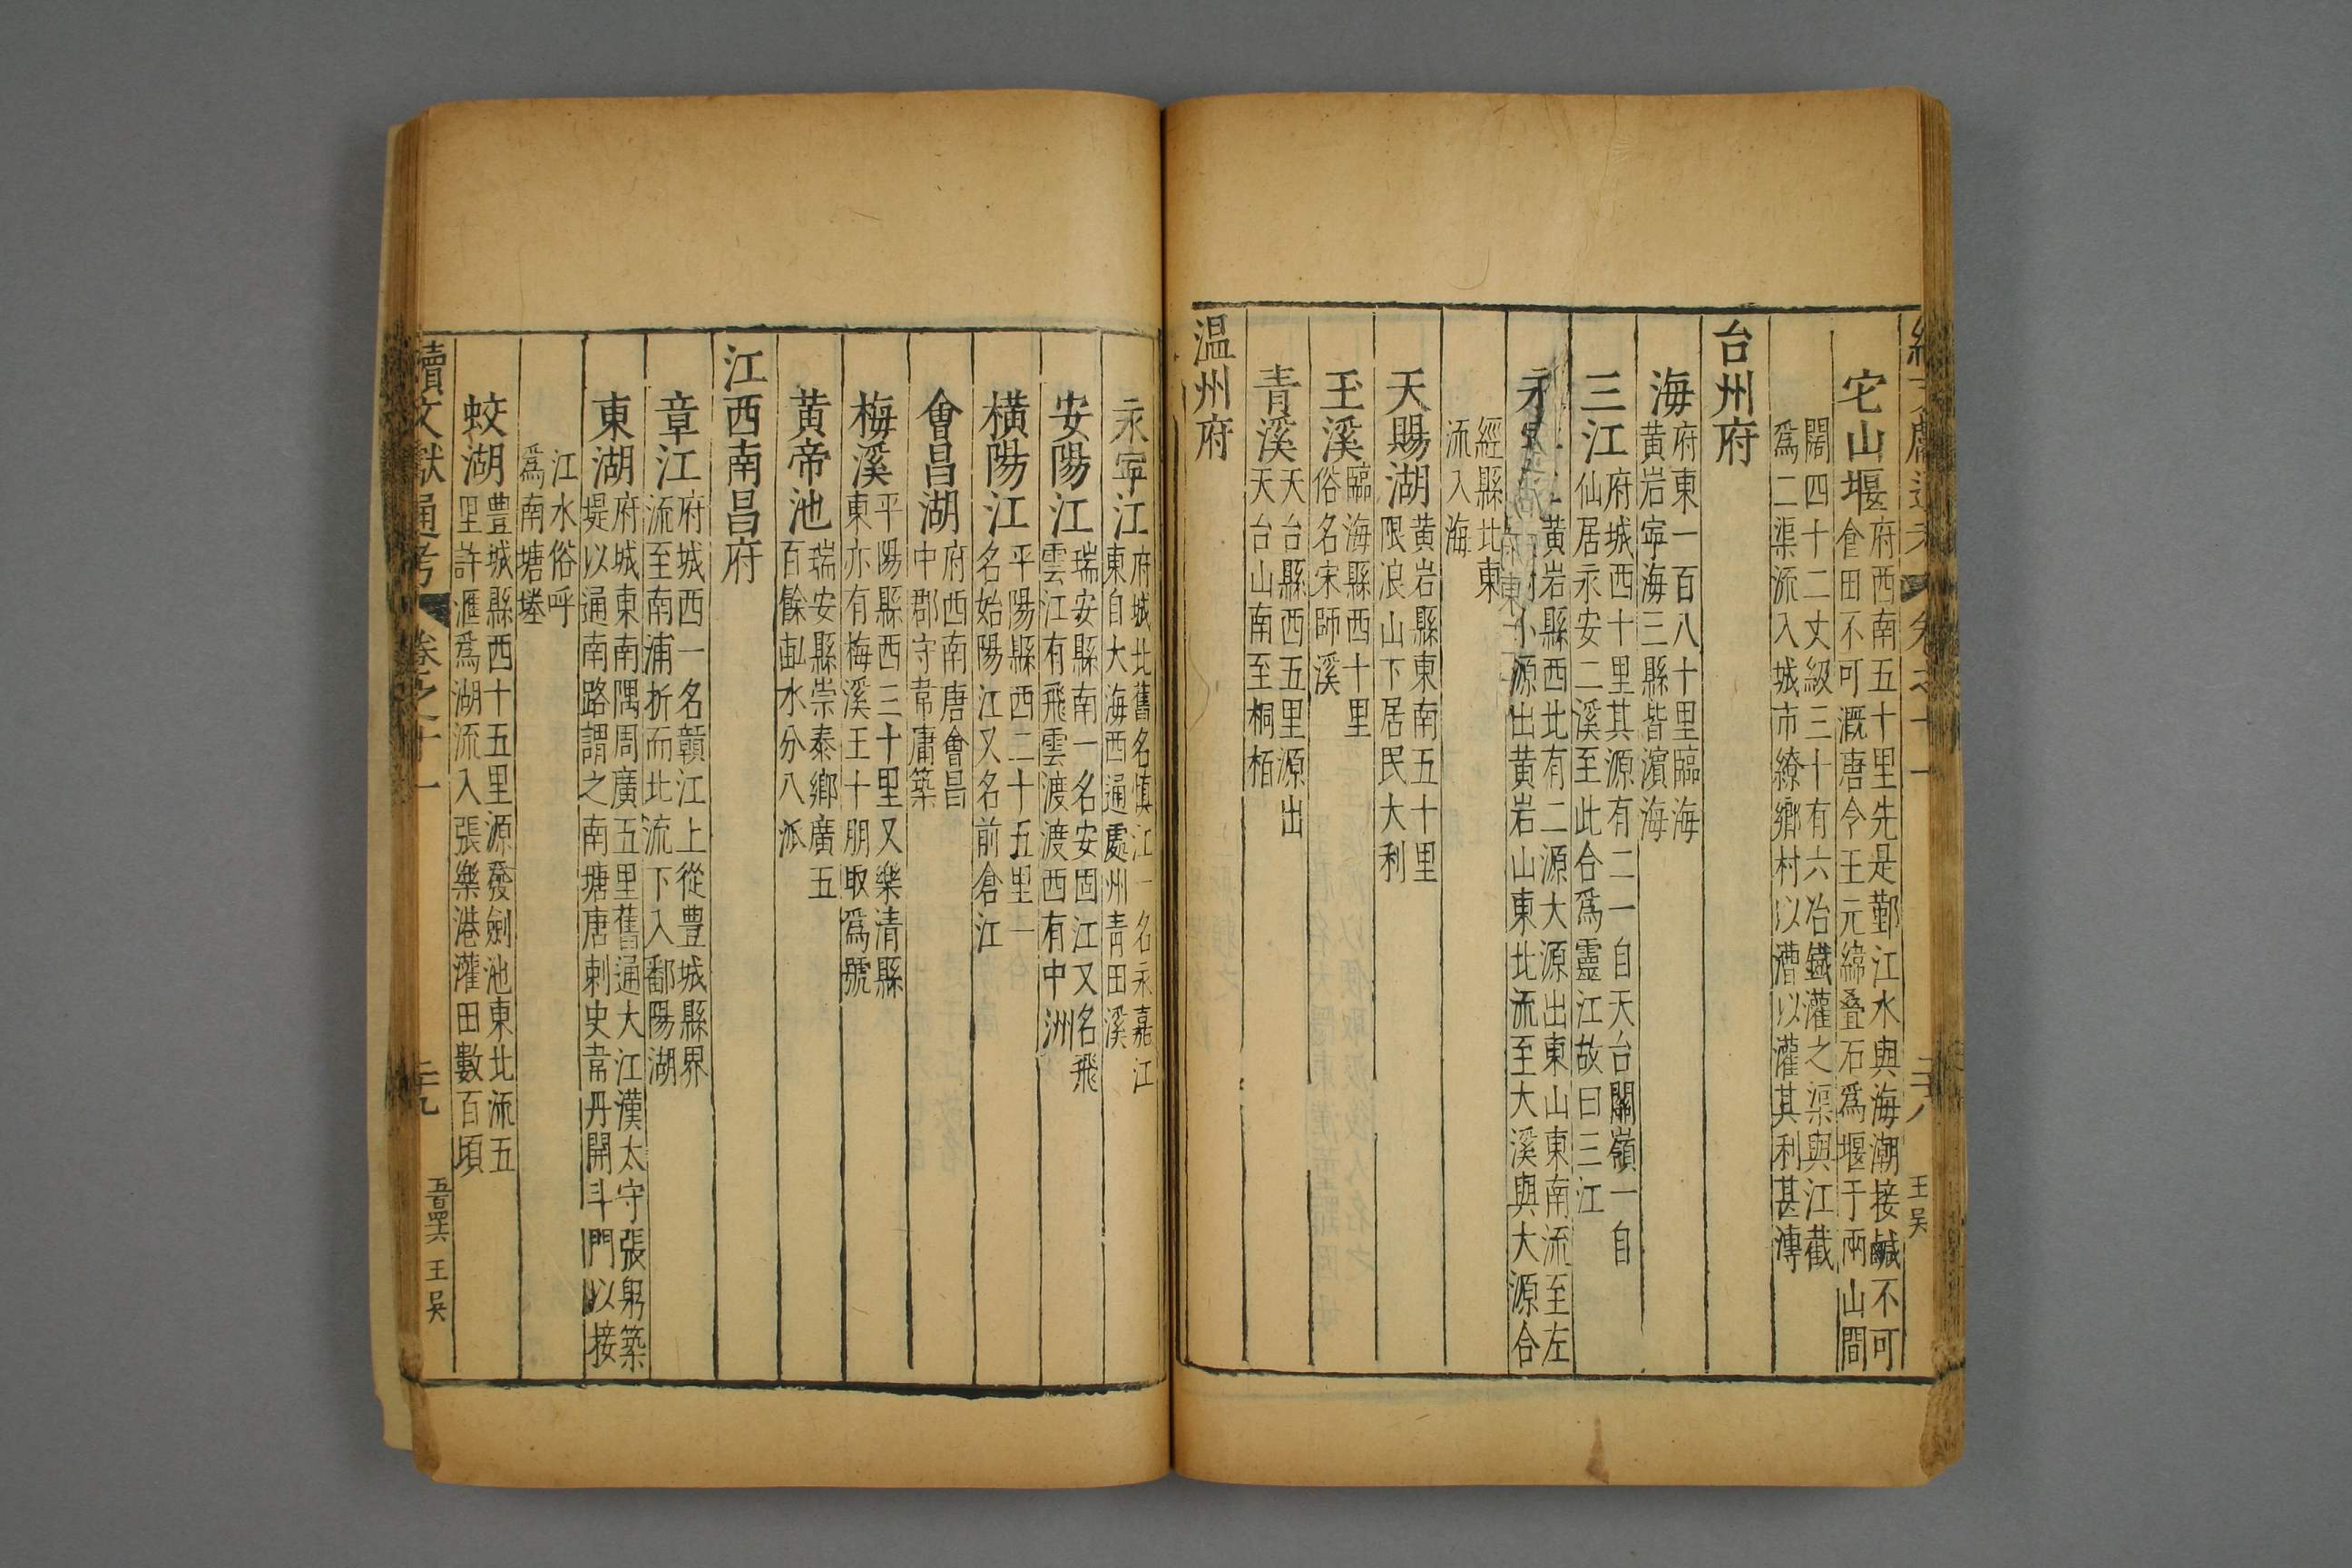 宅山堰府西南五十里先是鄞江水與海潮接鹹不可
食田不可溉唐令王元緯疊石爲堰于兩山間
闊四十二丈級三十有六冶鐵灌之渠與江截
爲二渠流入城市繚鄉村以漕以灌其利甚溥
台州府
海府東一百八十里臨海
黄岩寧海三縣皆濱海
三江府城西十里其源有二一自天台關嶺一自
仙居永安二溪至此合爲靈江故曰三江
永寧江黄岩縣西北有二源大源出東山東南流至左
小源出黄岩山東北流至大溪與大源合
經縣北東
流入海
天賜湖黄岩縣東南五十里
限浪山下居民大利
玉溪臨海縣西十里
俗名宋師溪
青溪天台縣西五里源出
天台山南至桐栢
温州府
永寧江府城北舊名慎江一名永嘉江
東自大海西通處州青田溪
安陽江瑞安縣南一名安固江又名飛
雲江有飛雲渡渡西有中洲
橫陽江平陽縣西二十五里一
名始陽江又名前倉江
會昌湖府西南唐會昌
中郡守韋庸築
梅溪平陽縣西三十里又樂清縣
東亦有梅溪王十朋取爲號
黄帝池瑞安縣崇泰鄉廣五
百餘畆水分八派
江西南昌府
章江府城西一名贛江上從豊城縣界
流至南浦折而北流下入鄱陽湖
東湖府城東南隅周廣五里舊通大江漢太守張躬築
堤以通南路謂之南塘唐刺史韋丹開斗門以接
江水俗呼
爲南塘塍
蛟湖豊城縣西十五里源發劍池東北流五
里許滙爲湖流入張樂港灌田數百頃
續文獻通考 卷之十一 二十九 五百四十六 王吳